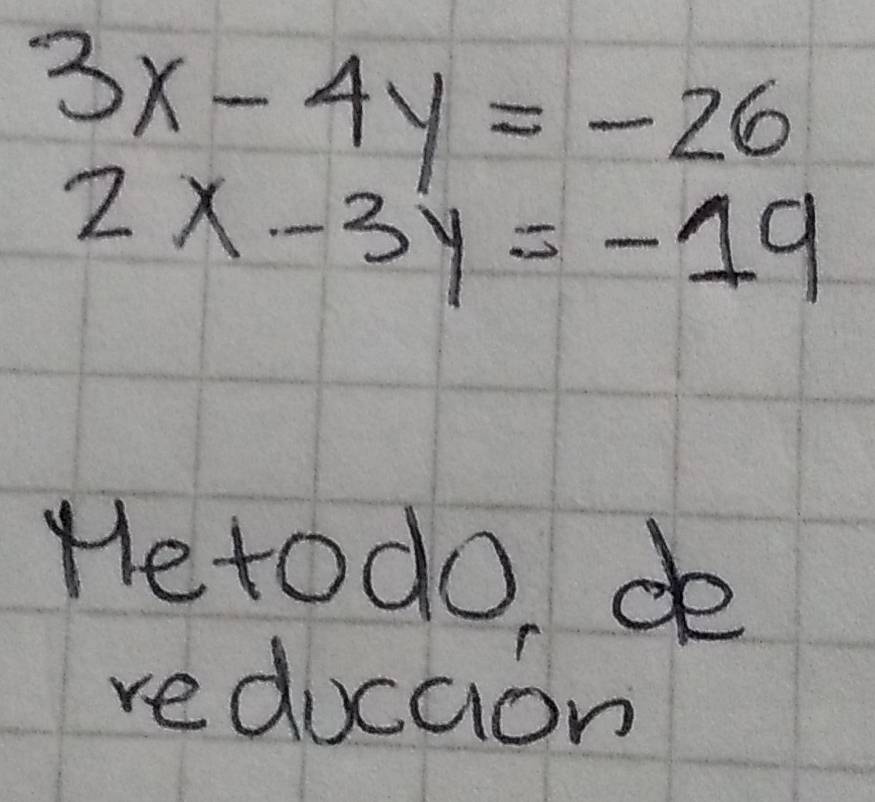 3x - 4y = -26
2x - 3y = -19
Metodo de
reducción